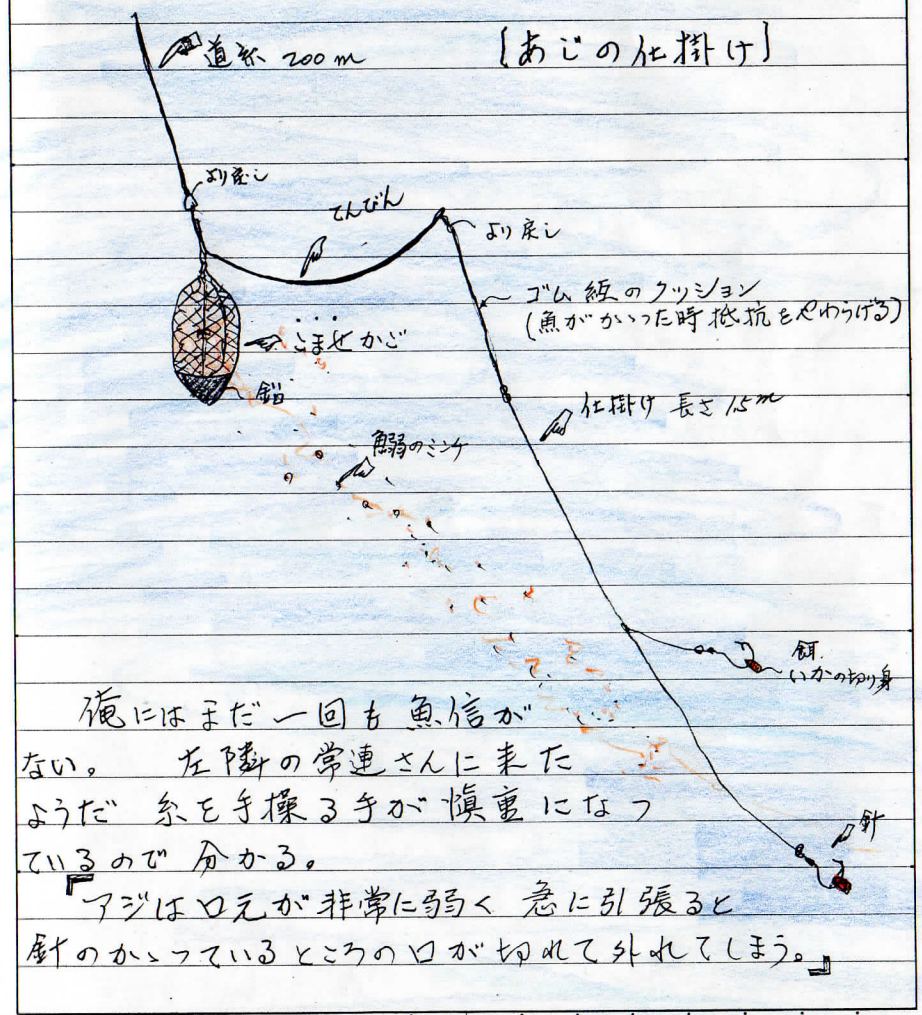 道糸 200m
[あじの仕掛け]
より戻し
てんびん
より戻し
ゴム紐のクッション
(魚がかゝった時抵抗をやわらげる)
こませかご
錨
仕掛け 長さ 1.5m
鰯のミンチ
餌
いかの切り身
俺にはまだ一回も魚信が
ない。 左隣の常連さんに来た
ようだ 糸を手操る手が慎重になっ
ているので分かる。
『アジは口元が非常に弱く 急に引張ると
針のかゝっているところの口が切れて外れてしまう。』
針